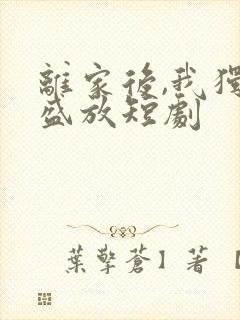 離家後,我獨
盛放短劇
葉擎蒼】著 【